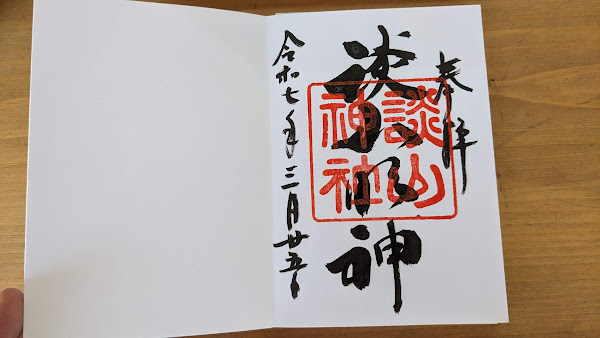 奉拝
談 明神
談山
神社
令和七年三月廿五日